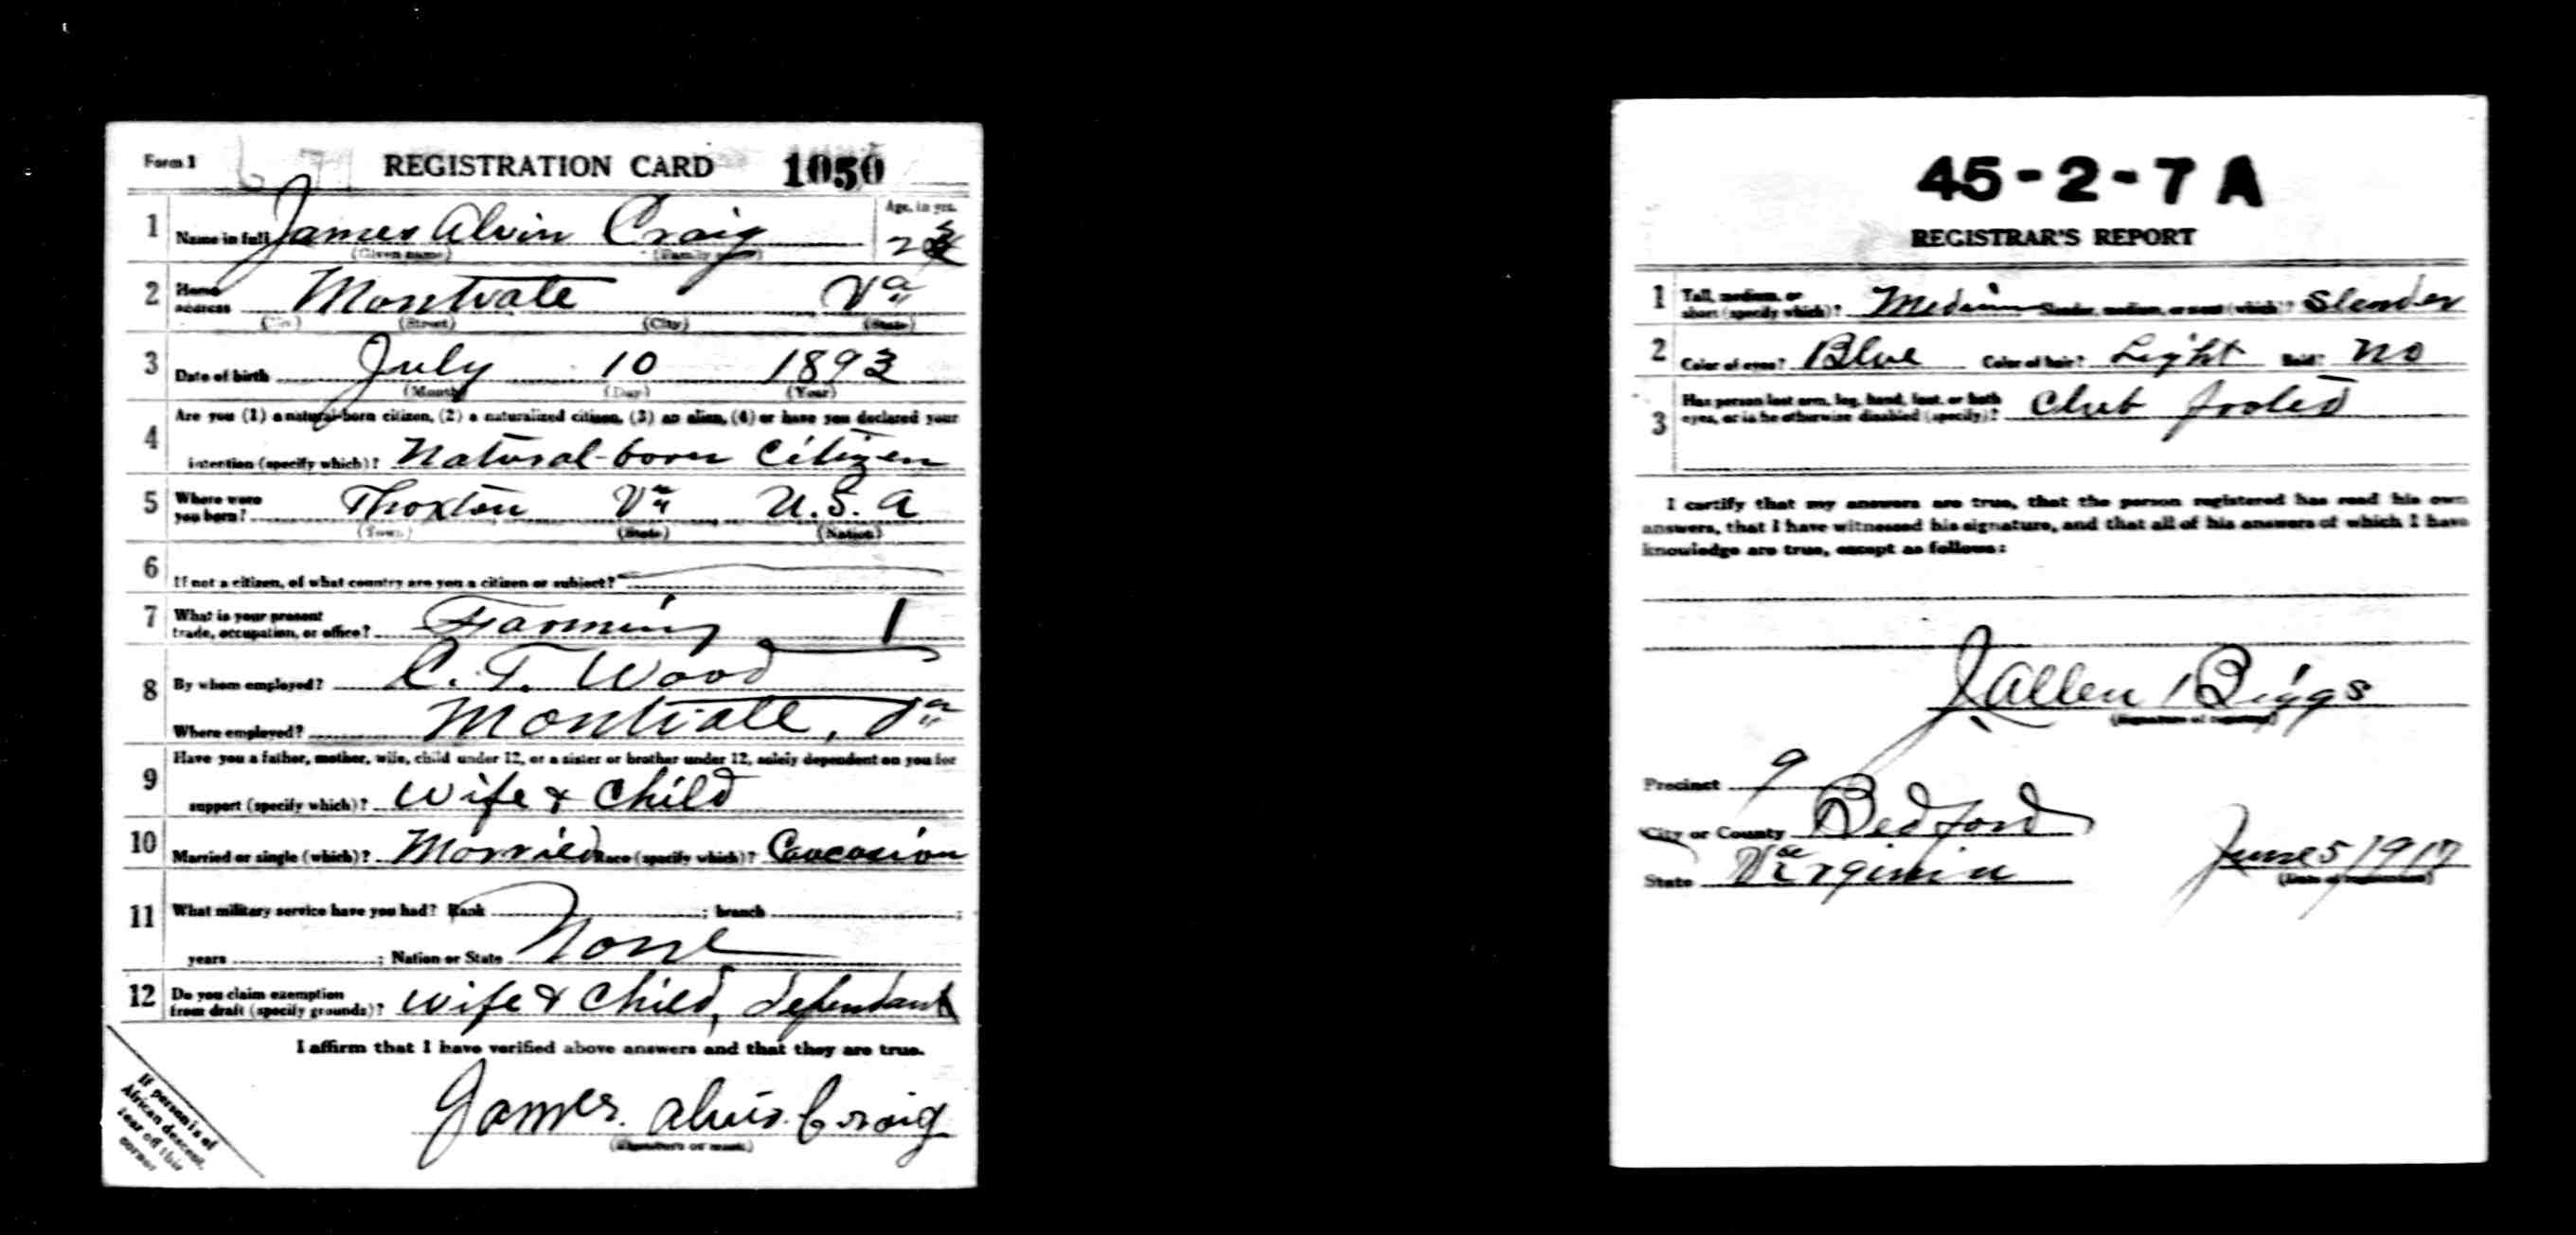 Form 1 REGISTRATION CARD 1050
1 Name in full James Alvin Craig Age, in yrs.
(Given name) (Family name) 23
2 Home address Montvale Va
(No.) (Street) (City) (State)
3 Date of birth July 10 1893
(Month) (Day) (Year)
Are you (1) a natural-born citizen, (2) a naturalized citizen, (3) an alien, (4) or have you declared your
4 intention (specify which)? Natural-born Citizen
5 Where were you born? Thaxton Va U.S.A
(Town) (State) (Nation)
6 If not a citizen, of what country are you a citizen or subject?
7 What is your present trade, occupation, or office? Farming 1
8 By whom employed? C. T. Wood
Where employed? Montvale, Va
Have you a father, mother, wife, child under 12, or a sister or brother under 12, solely dependent on you for
9 support (specify which)? Wife & Child
10 Married or single (which)? Married Race (specify which)? Caucasian
11 What military service have you had? Rank ; branch ;
years ; Nation or State None
12 Do you claim exemption from draft (specify grounds)? Wife & Child, dependant
I affirm that I have verified above answers and that they are true.
James Alvin Craig
(Signature or mark)
If person is of
African descent,
tear off this
corner
45-2-7 A
REGISTRAR'S REPORT
1 Tall, medium, or short (specify which)? Medium Slender, medium, or stout (which)? Slender
2 Color of eyes? Blue Color of hair? Light Bald? No
3 Has person lost arm, leg, hand, foot, or both eyes, or is he otherwise disabled (specify)? Club footed
I certify that my answers are true, that the person registered has read his own
answers, that I have witnessed his signature, and that all of his answers of which I have
knowledge are true, except as follows:
J Allen Biggs
(Signature of registrar)
Precinct 9
City or County Bedford
State Virginia June 5 1917
(Date of registration)